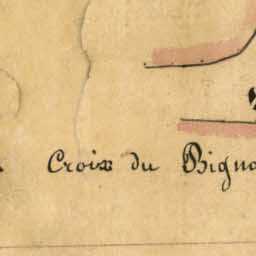 Croix du Bigno